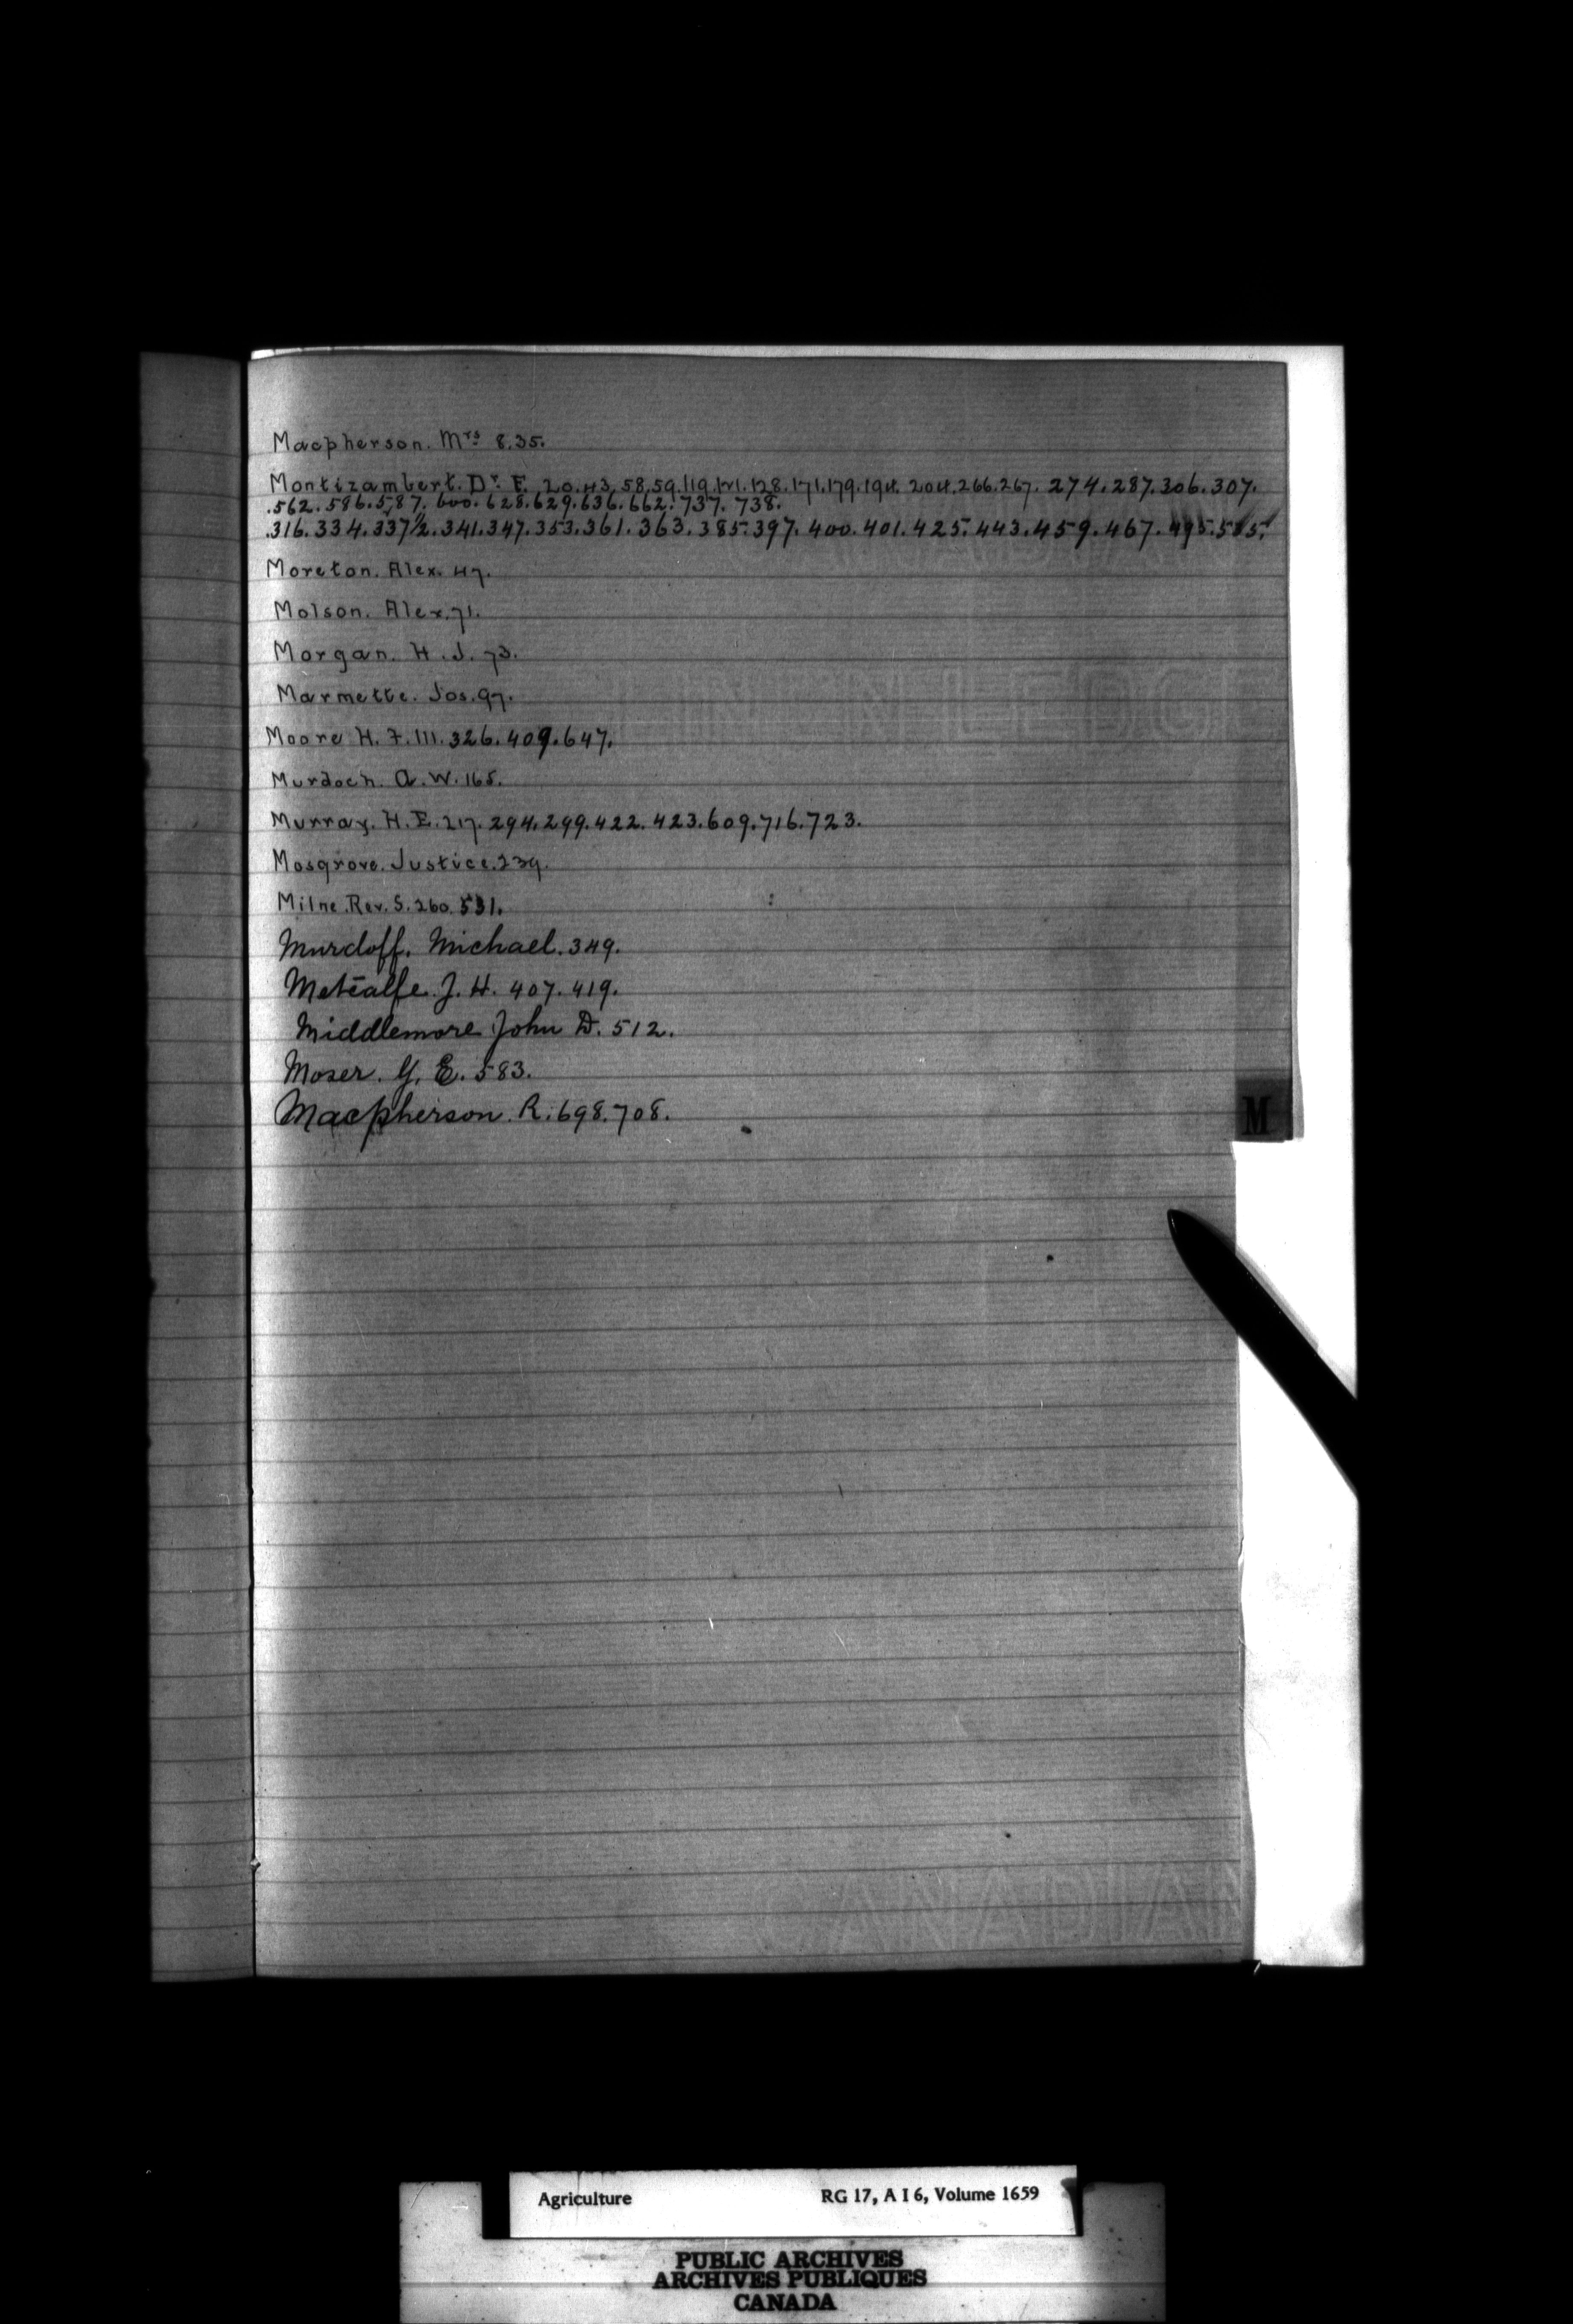 Macpherson. Mrs 8.35.
Montizambert. Dr. F. 20.43.58.59.119.121.128.171.179.194.204.266.267. 274.287.306.307.
.562.586.587. 600. 628.629.636.662.737. 738.
.316.334.337½.341.347.353.361.363.385.397. 400. 401.425.443.459.467.495.
Moreton. Alex. 47.
Molson. Alex. 71.
Morgan. H. J. 73.
Marmette. Jos. 97.
Moore H. F. 111. 326. 409. 647.
Murdoch. A. W. 165.
Murray. H. E. 217. 294. 299. 422. 423. 609. 716. 723.
Mosgrove. Justice. 239.
Milne. Rev. S. 260. 531.
Murdoff. Michael. 349.
Metcalfe. J. H. 407. 419.
Middlemore John D. 512.
Moser. G. E. 583.
Macpherson. R. 698. 708.
M
LINEN LEDGE
CANADIAN
Agriculture RG 17, A I 6, Volume 1659
PUBLIC ARCHIVES
ARCHIVES PUBLIQUES
CANADA